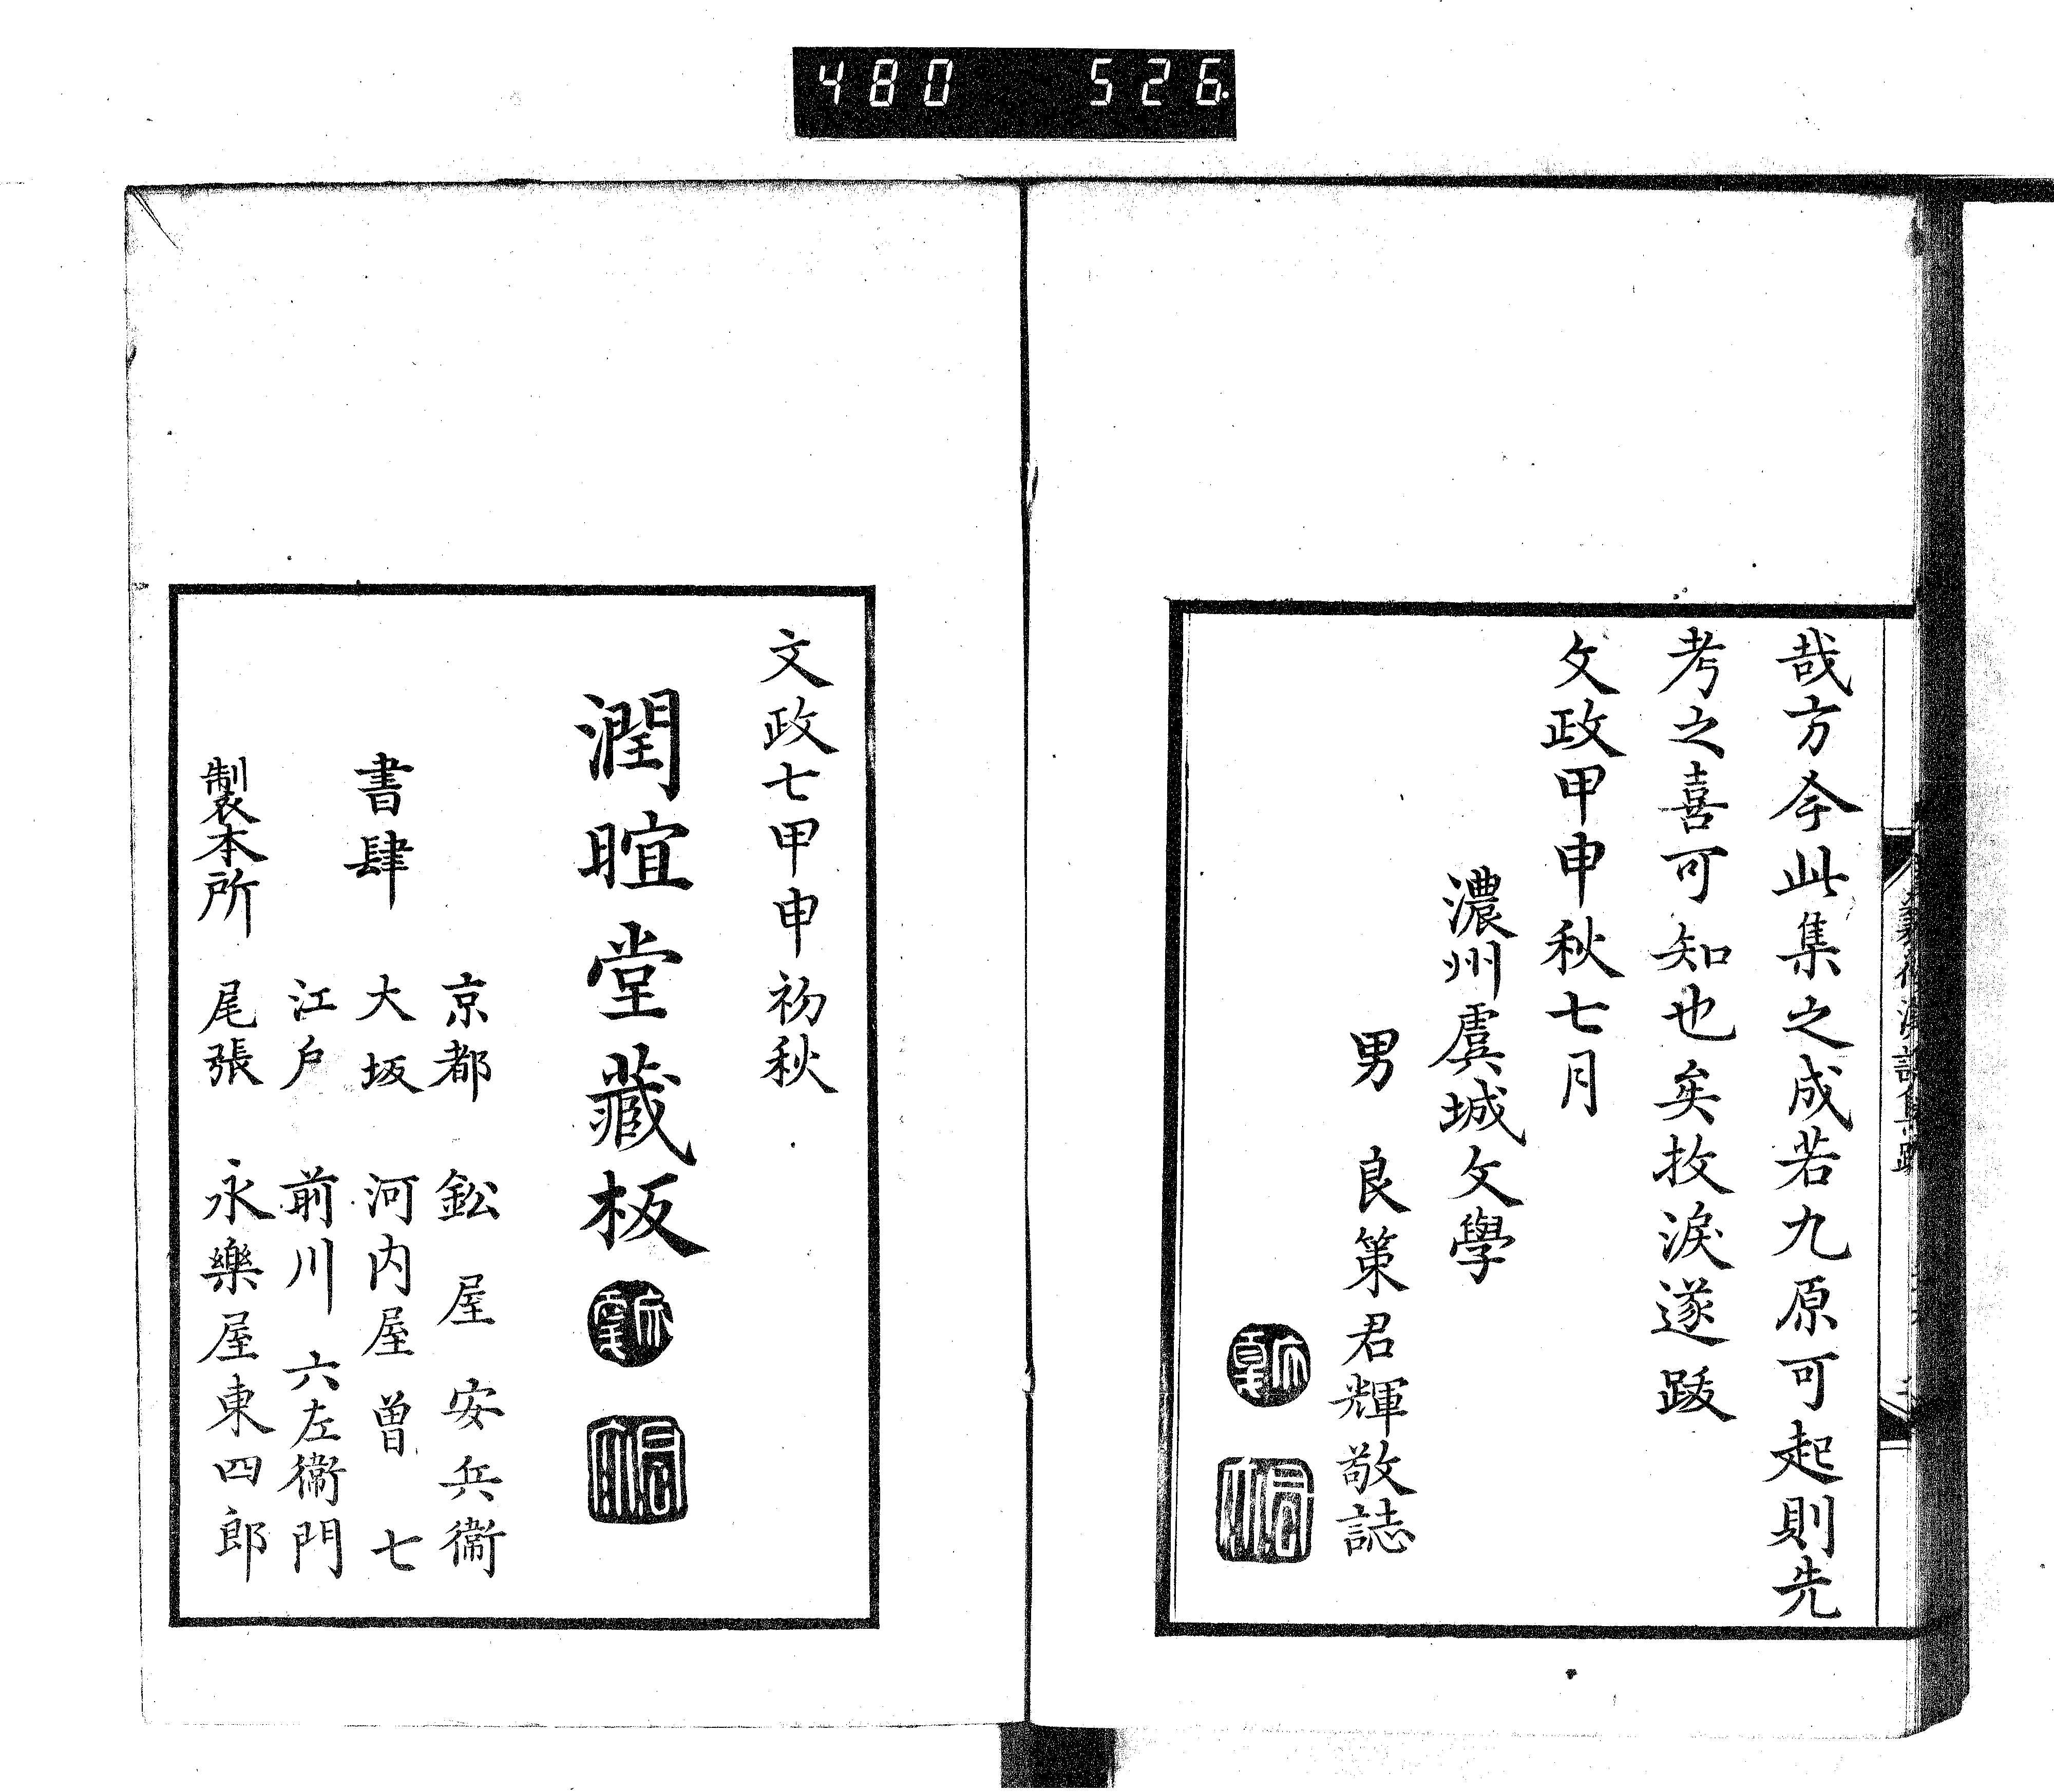 480 526
哉方今此集之成若九原可起則先
考之喜可知也矣抆淚遂跋
文政甲申秋七月
濃州虞城文學
男 良策君輝敬誌
文政七甲申初秋
潤暄堂藏板
書肆
京都 鈆屋安兵衞
大坂 河内屋曾七
江戸 前川六左衞門
製本所 尾張 永樂屋東四郎